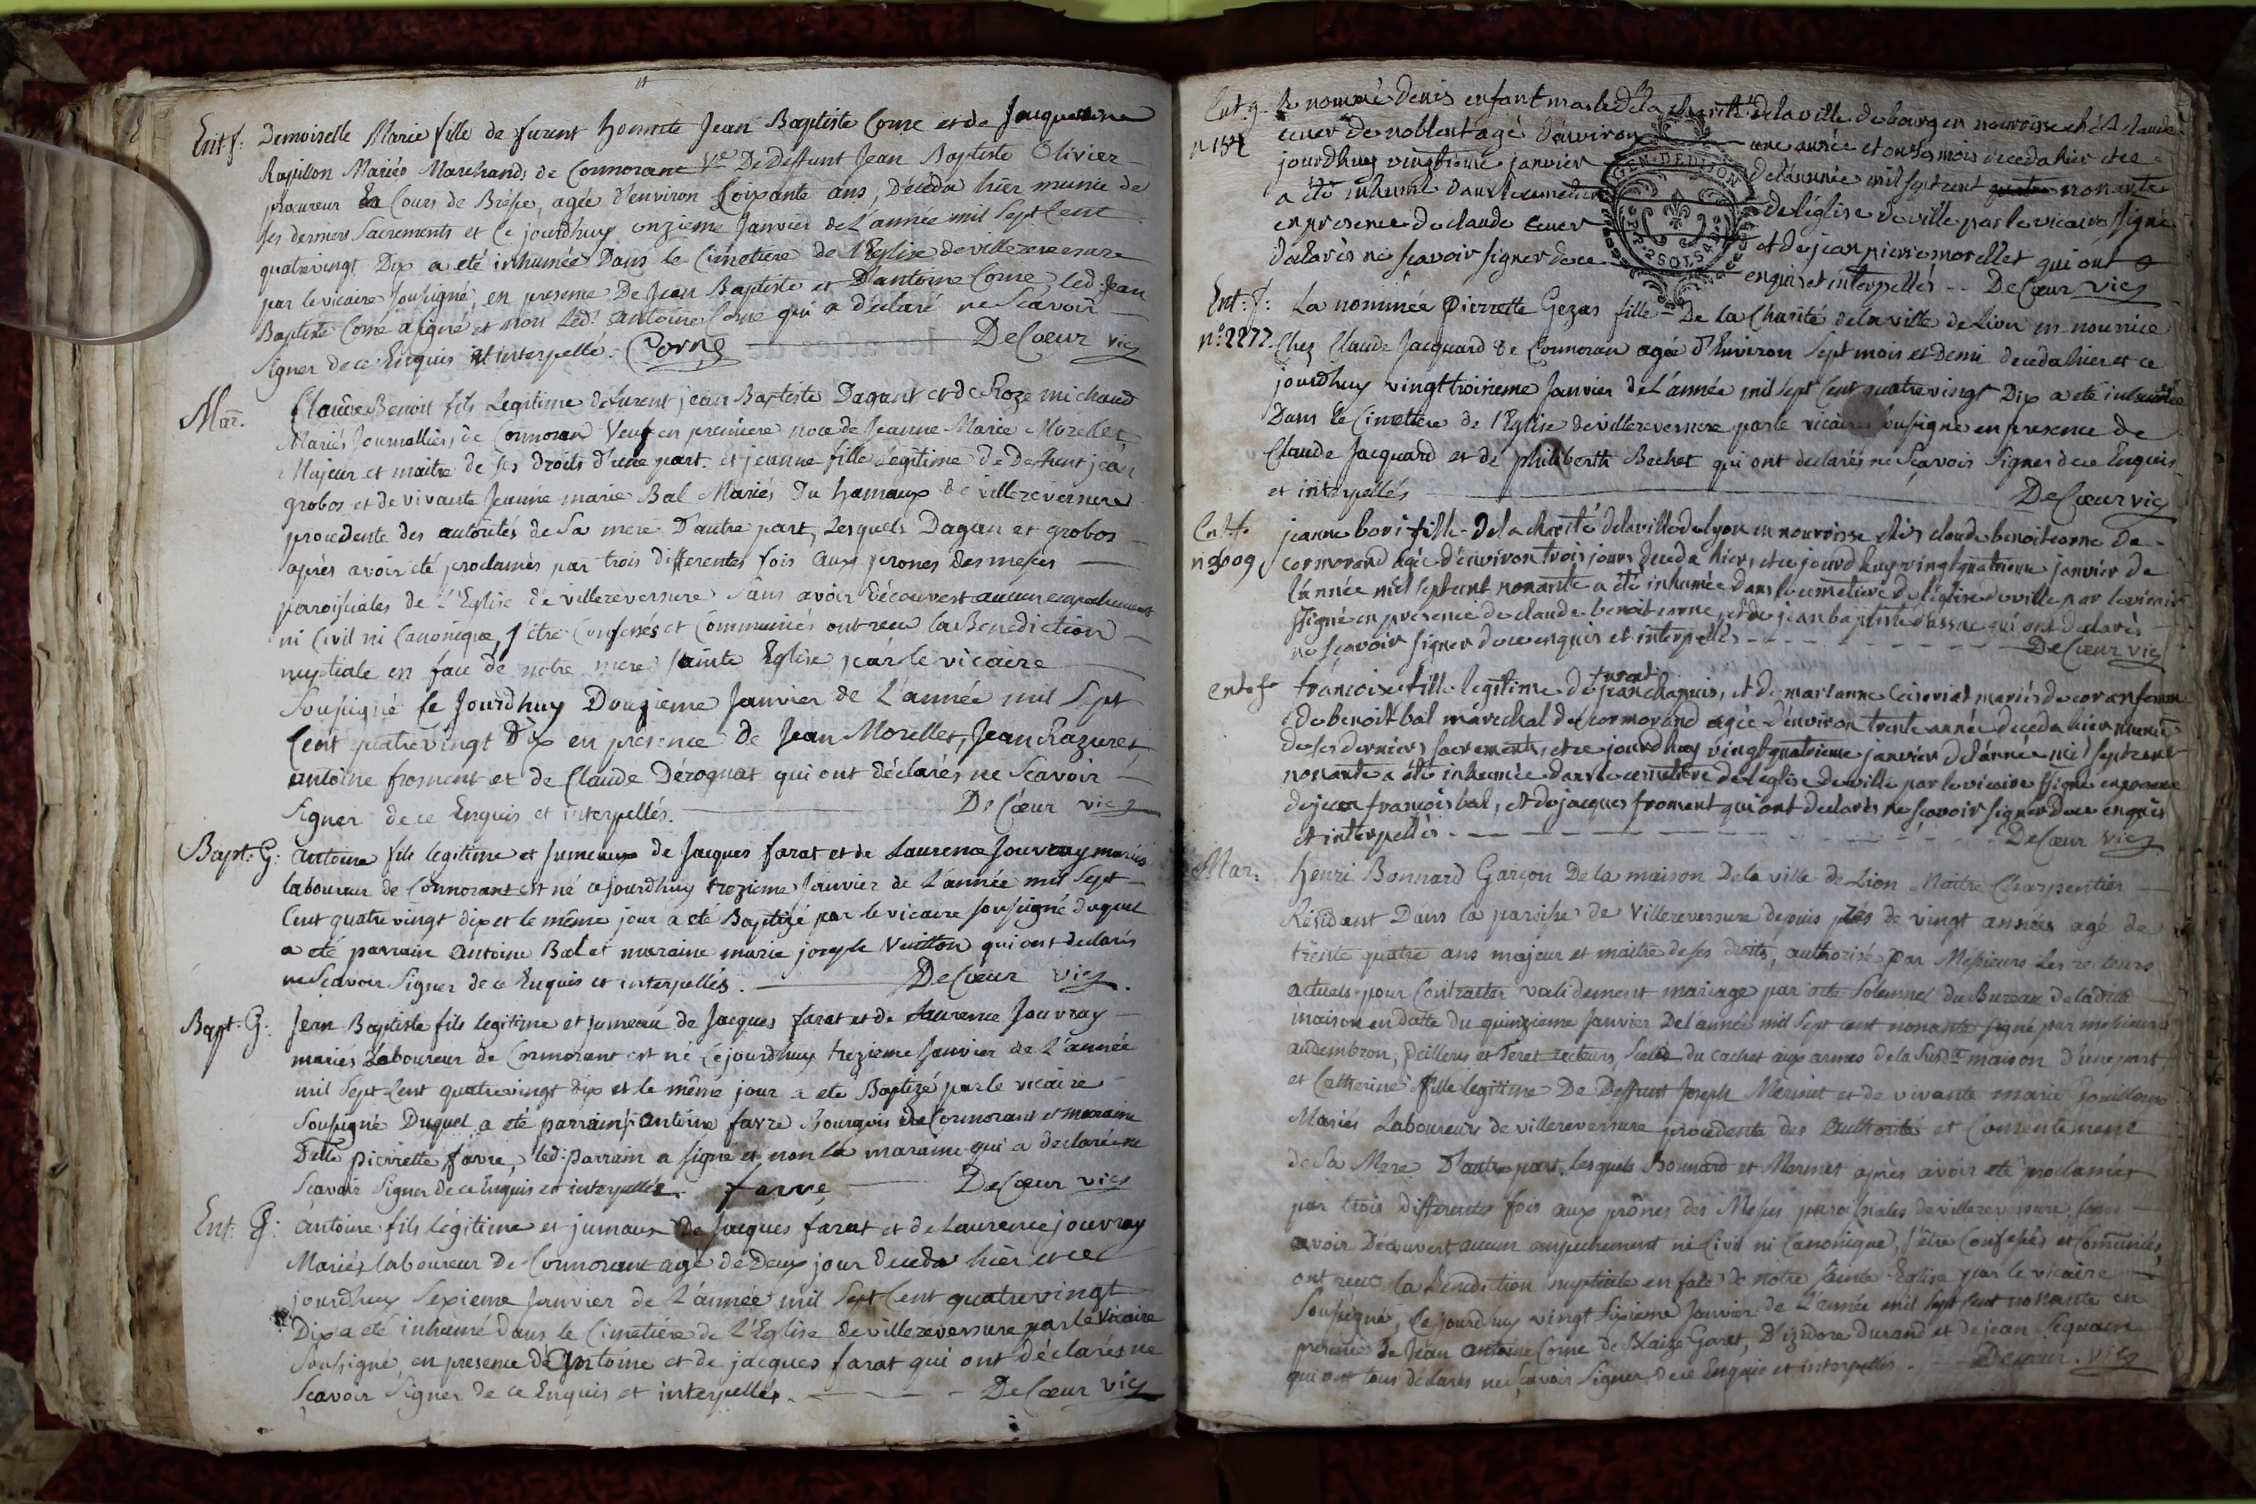 Ent f: Demoiselle Marie fille de furent honnête Jean Baptiste Corne et de Jacqueline
Rapillon Mariés Marchands de Cormorant Ve De Deffunt Jean Baptiste Olivier
procureur En Cours de Bresse, agée d'environ soixante ans, Déceda hier munie de
ses derniers Sacrements et Ce jourdhuy onzieme Janvier de L'année mil Sept Cent
quatrevingt Dix a eté inhumée Dans le Cimetiere de l'Eglise de villereversure
par le vicaire soussigné, en presence De Jean Baptiste et D'antoine Corne, led. Jean
Baptiste Corne a signé et non Led. antoine Corne qui a déclaré ne Scavoir
signer de ce Enquis et interpellé. Corne DeCoeur vic
Mar. Claude Benoit fils Legitime de furent jean Baptiste Dagant et de Roze michaud
Mariés Journalliers de Cormoran Veuf en premiere noce de Jeanne Marie Morellet
Majeur et maitre de ses droits d'une part. et jeanne fille Legitime de Deffunt jean
grobos et de vivante Jeanne marie Bal Mariés Du hamaux de villereversure
procedente des autorités de Sa mere D'autre part, Lesquels Dagan et grobos
après avoir eté proclamés par trois differentes fois aux prones des messes
paroissiales de l'Eglise de villereversure Sans avoir découvert aucun empechement
ni Civil ni Canonique, s'être Confessés et Communiés ont recu la Benediction
nuptiale en face de notre mere sainte Eglise par le vicaire
Soussigné Ce Jourdhuy Douzieme Janvier de L'année mil Sept
Cent quatrevingt Dix en presence de Jean Morellet, Jean Razuret,
antoine froment et de Claude Dérognat qui ont déclarés ne Scavoir
Signer de ce Enquis et interpellés. De Cœur vic
Bapt: G: antoine fils legitime et Jumeaux de Jacques farat et de Laurence Jouvray mariés
laboureur de Cormorant est né cejourdhuy trezieme Janvier de L'année mil Sept
Cent quatre vingt dix et le même jour a eté Baptizé par le vicaire soussigné duquel
a eté parrain antoine Bal et maraine marie joseph Vuitton qui ont declarés
ne Scavoir Signer de ce Enquis et interpellés. DeCœur vic
Bapt: G: Jean Baptiste fils legitime et jumeau de Jacques farat et de Laurence Jouvray
mariés Laboureur de Cormorant est né Ce jourdhuy trezieme Janvier de L'année
mil Sept Cent quatrevingt dix et le même jour a eté Baptizé par le vicaire
Soussigné Duquel a eté parrain antoine favre Bourgois de Cormorant et maraine
Delle pierrette favre, led: parrain a signé et non la maraine qui a declaré ne
Scavoir Signer de ce Enquis et interpellée. favre DeCœur vic
Ent: G: antoine fils légitime et jumaux De Jacques farat et de Laurence jouvray
Mariés laboureur De Cormorant agé de Deux jour Deceda hier et ce
jourdhuy Sezieme Janvier de L'année mil Sept Cent quatrevingt
Dix a eté inhumé Dans le Cimetiére de L'Eglise de villereversure par le Vicaire
Soussigné, en presence d'Antoine et de jacques farat qui ont déclarés ne
Scavoir Signer de ce Enquis et interpellés. DeCœur vic
Ent. g. le nommé denis enfant masle de la charité de la ville de bourg en nourrisse chés claude
n. cuer de noblent agé d'environ une année et onze mois deceda hier et ce
jourdhuy vingtieme janvier de l'année mil sept cent nonante
a été inhumé dans le cemetiere de l'église de ville par le vicaire ssigné
en presence de claude cuer et de jean pierre morellet qui ont
déclarés ne scavoir signer de ce enquis et interpellés DeCœur vic
GEN. DE DIJON
Ent: f: La nommée Pierrette Gezas fille De la Charité de la ville de Lion en nourrice
n°: 2277. Chez Claude Jacquard de Cormoran agée d'Environ Sept mois et Demi deceda hier et ce
jourdhuy vingt troisieme Janvier de L'année mil sept Cent quatre vingt Dix a eté inhumée
Dans le Cimetiere de l'Eglise de villereversure par le vicaire soussigné en presence de
Claude Jacquard et de philiberth Bechet qui ont declarés ne Scavoir Signer de ce Enquis
et interpellés DeCœur vic
Ent. f. jeanne bori fille de la charité de la ville de lyon en nourrisse chés claude benoit corne de
cormorand agée d'environ trois jours deceda hier, et ce jourd'huy vingt quatrieme janvier de
l'année mil sept cent nonante a été inhumée dans le cemetiere de l'église de ville par le vicaire
ssigné en presence de claude benoit corne, et de jean baptiste dassac qui ont declarés
ne scavoir signer de ce enquis et interpellés DeCœur vic
ent. f. françoise fille legitime de furent jean chapuis, et de marianne Ceiseriat mariés de coran femme
de benoit bal maréchal de cormorand agée d'environ trente année deceda hier munie
de ses derniers sacrements, et ce jourdhuy vingt quatrieme janvier de l'année mil sept cent
nonante a été inhumée dans le cemetiere de l'église de ville par le vicaire ssigné en presence
de jean francois bal, et de jacques froment qui ont declarés ne scavoir signer de ce enquis
et interpellés DeCœur vic
Mar: henri Bonnard Garçon De la maison De la ville de Lion Maitre Charpentier
Résidant Dans la paroisse de Villereversure depuis près de vingt années agé de
trente quatre ans majeur et maitre de ses droits, authorisé par Messieurs Les recteurs
actuels pour Contracter validement mariage par acte Solennel du Bureau de ladite
maison en datte du quinzieme Janvier De l'année mil Sept cent nonante signé par messieurs
audembron, Deillerus et Teret recteurs, scellé du cachet aux armes de la susdte maison d'une part
et Catherine fille legitime De Deffunt Joseph Mermet et de vivante marie Jouillon
Mariés Laboureurs de villereversure procedente des authorité et Consentement
de Sa Mere D'autre part. Lesquels Bonnard et Mermet après avoir eté proclamés
par trois differentes fois aux prônes des Messes paroissiales de villereversure sans
avoir Découvert aucun empechement ni Civil ni Canonique, s'être Confessés et Communiés,
ont reçu la Bénédiction nuptiale en face de notre Sainte Eglise par le vicaire
Soussigné, Ce jourdhuy vingt Sixieme Janvier de L'année mil Sept Cent nonante en
présence de Jean antoine Corne de Blaize Garet, D'izidore Durand et de jean Sequain
qui ont tous déclarés ne Scavoir Signer de ce Enquis et interpellés. DeCœur. vic